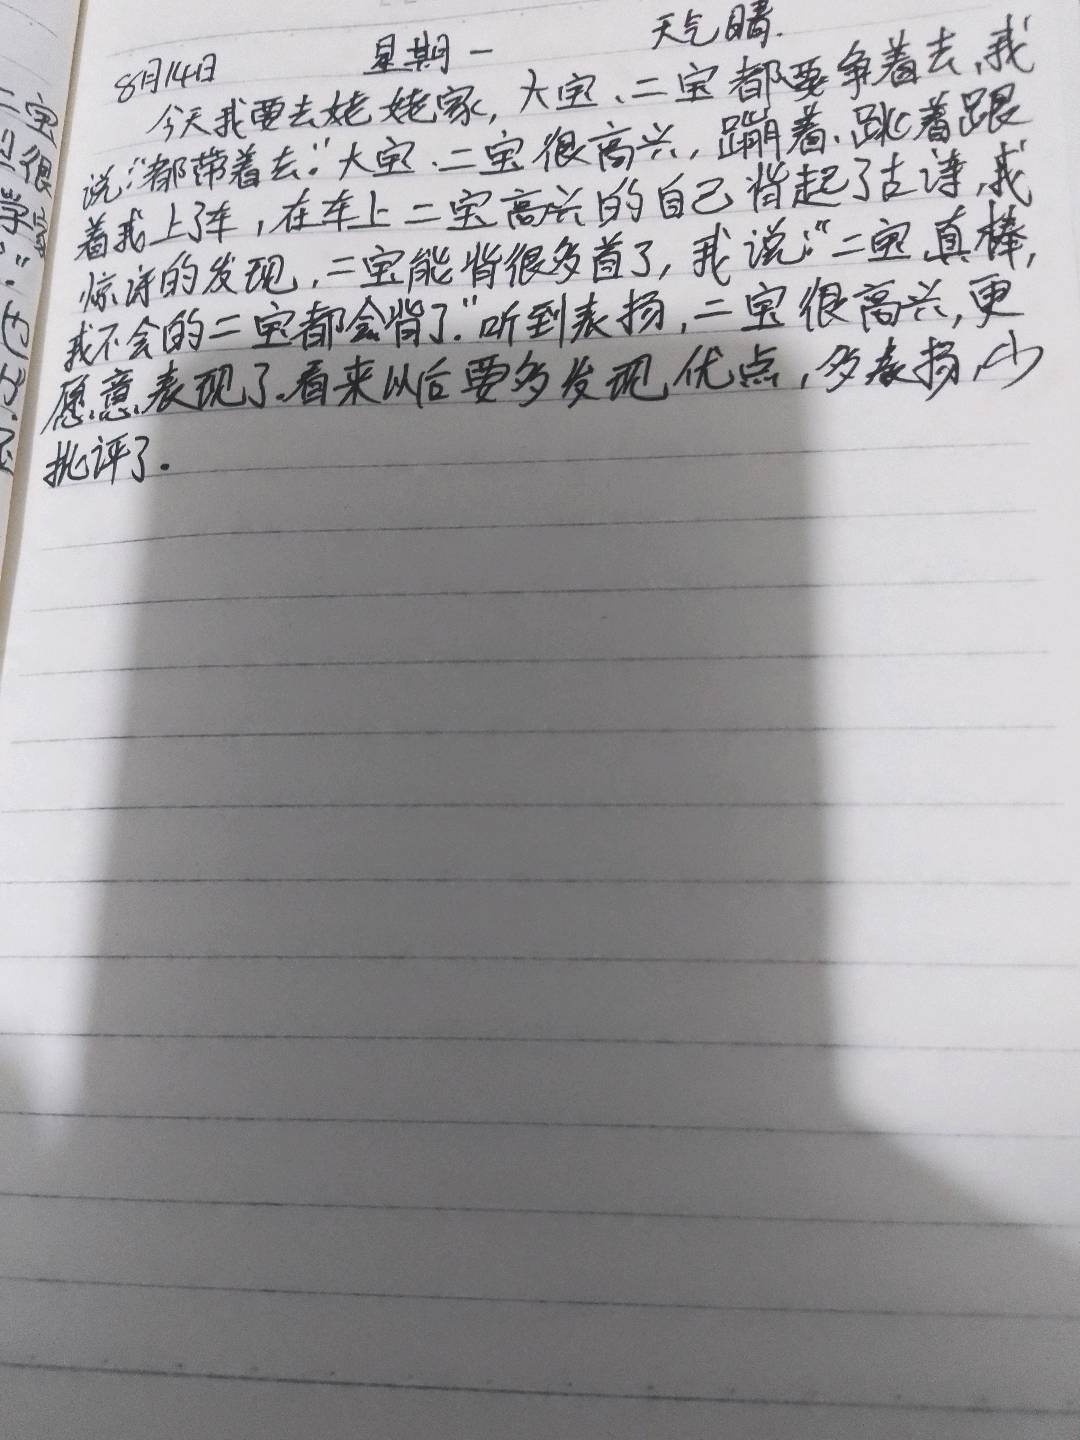 8月14日 星期一 天气晴.
今天我要去姥姥家,大宝、二宝都要争着去,我
说:"都带着去."大宝、二宝很高兴,蹦着、跳着跟
着我上了车,在车上二宝高兴的自己背起了古诗,我
惊讶的发现,二宝能背很多首了,我说:"二宝真棒,
我不会的二宝都会背了."听到表扬,二宝很高兴,更
愿意表现了.看来以后要多发现优点,多表扬,少
批评了.